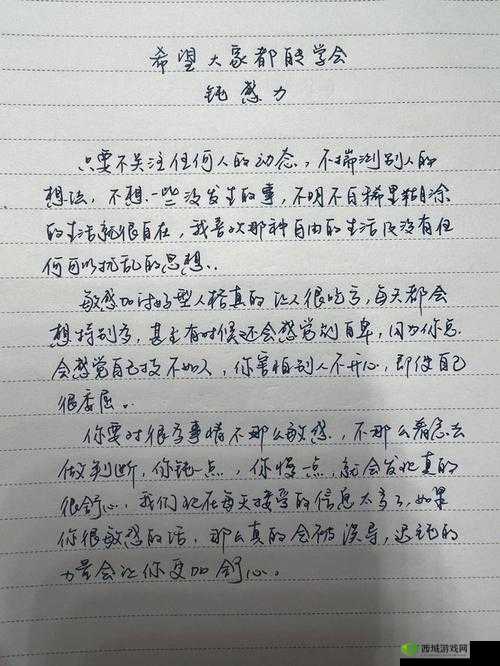 希望大家都能学会
钝感力
只要不关注任何人的动态，不揣测别人的
想法，不想一些没发生的事，不明不白稀里糊涂
的生活就很自在，我喜欢那种自由的生活没有任
何可以扰乱的思想..
敏感加讨好型人格真的让人很吃亏，每天都会
想特别多，甚至有时候还会感觉到自卑，因为你总
会感觉自己技不如人，你害怕别人不开心，即使自己
很委屈。
你要对很多事情不那么敏感，不那么着急去
做判断，你钝一点，你慢一点，就会发现真的
很舒心，我们现在每天接受的信息太多了，如果
你很敏感的话，那么真的会被误导，迟钝的
力量会让你更加舒心。
西域游戏网